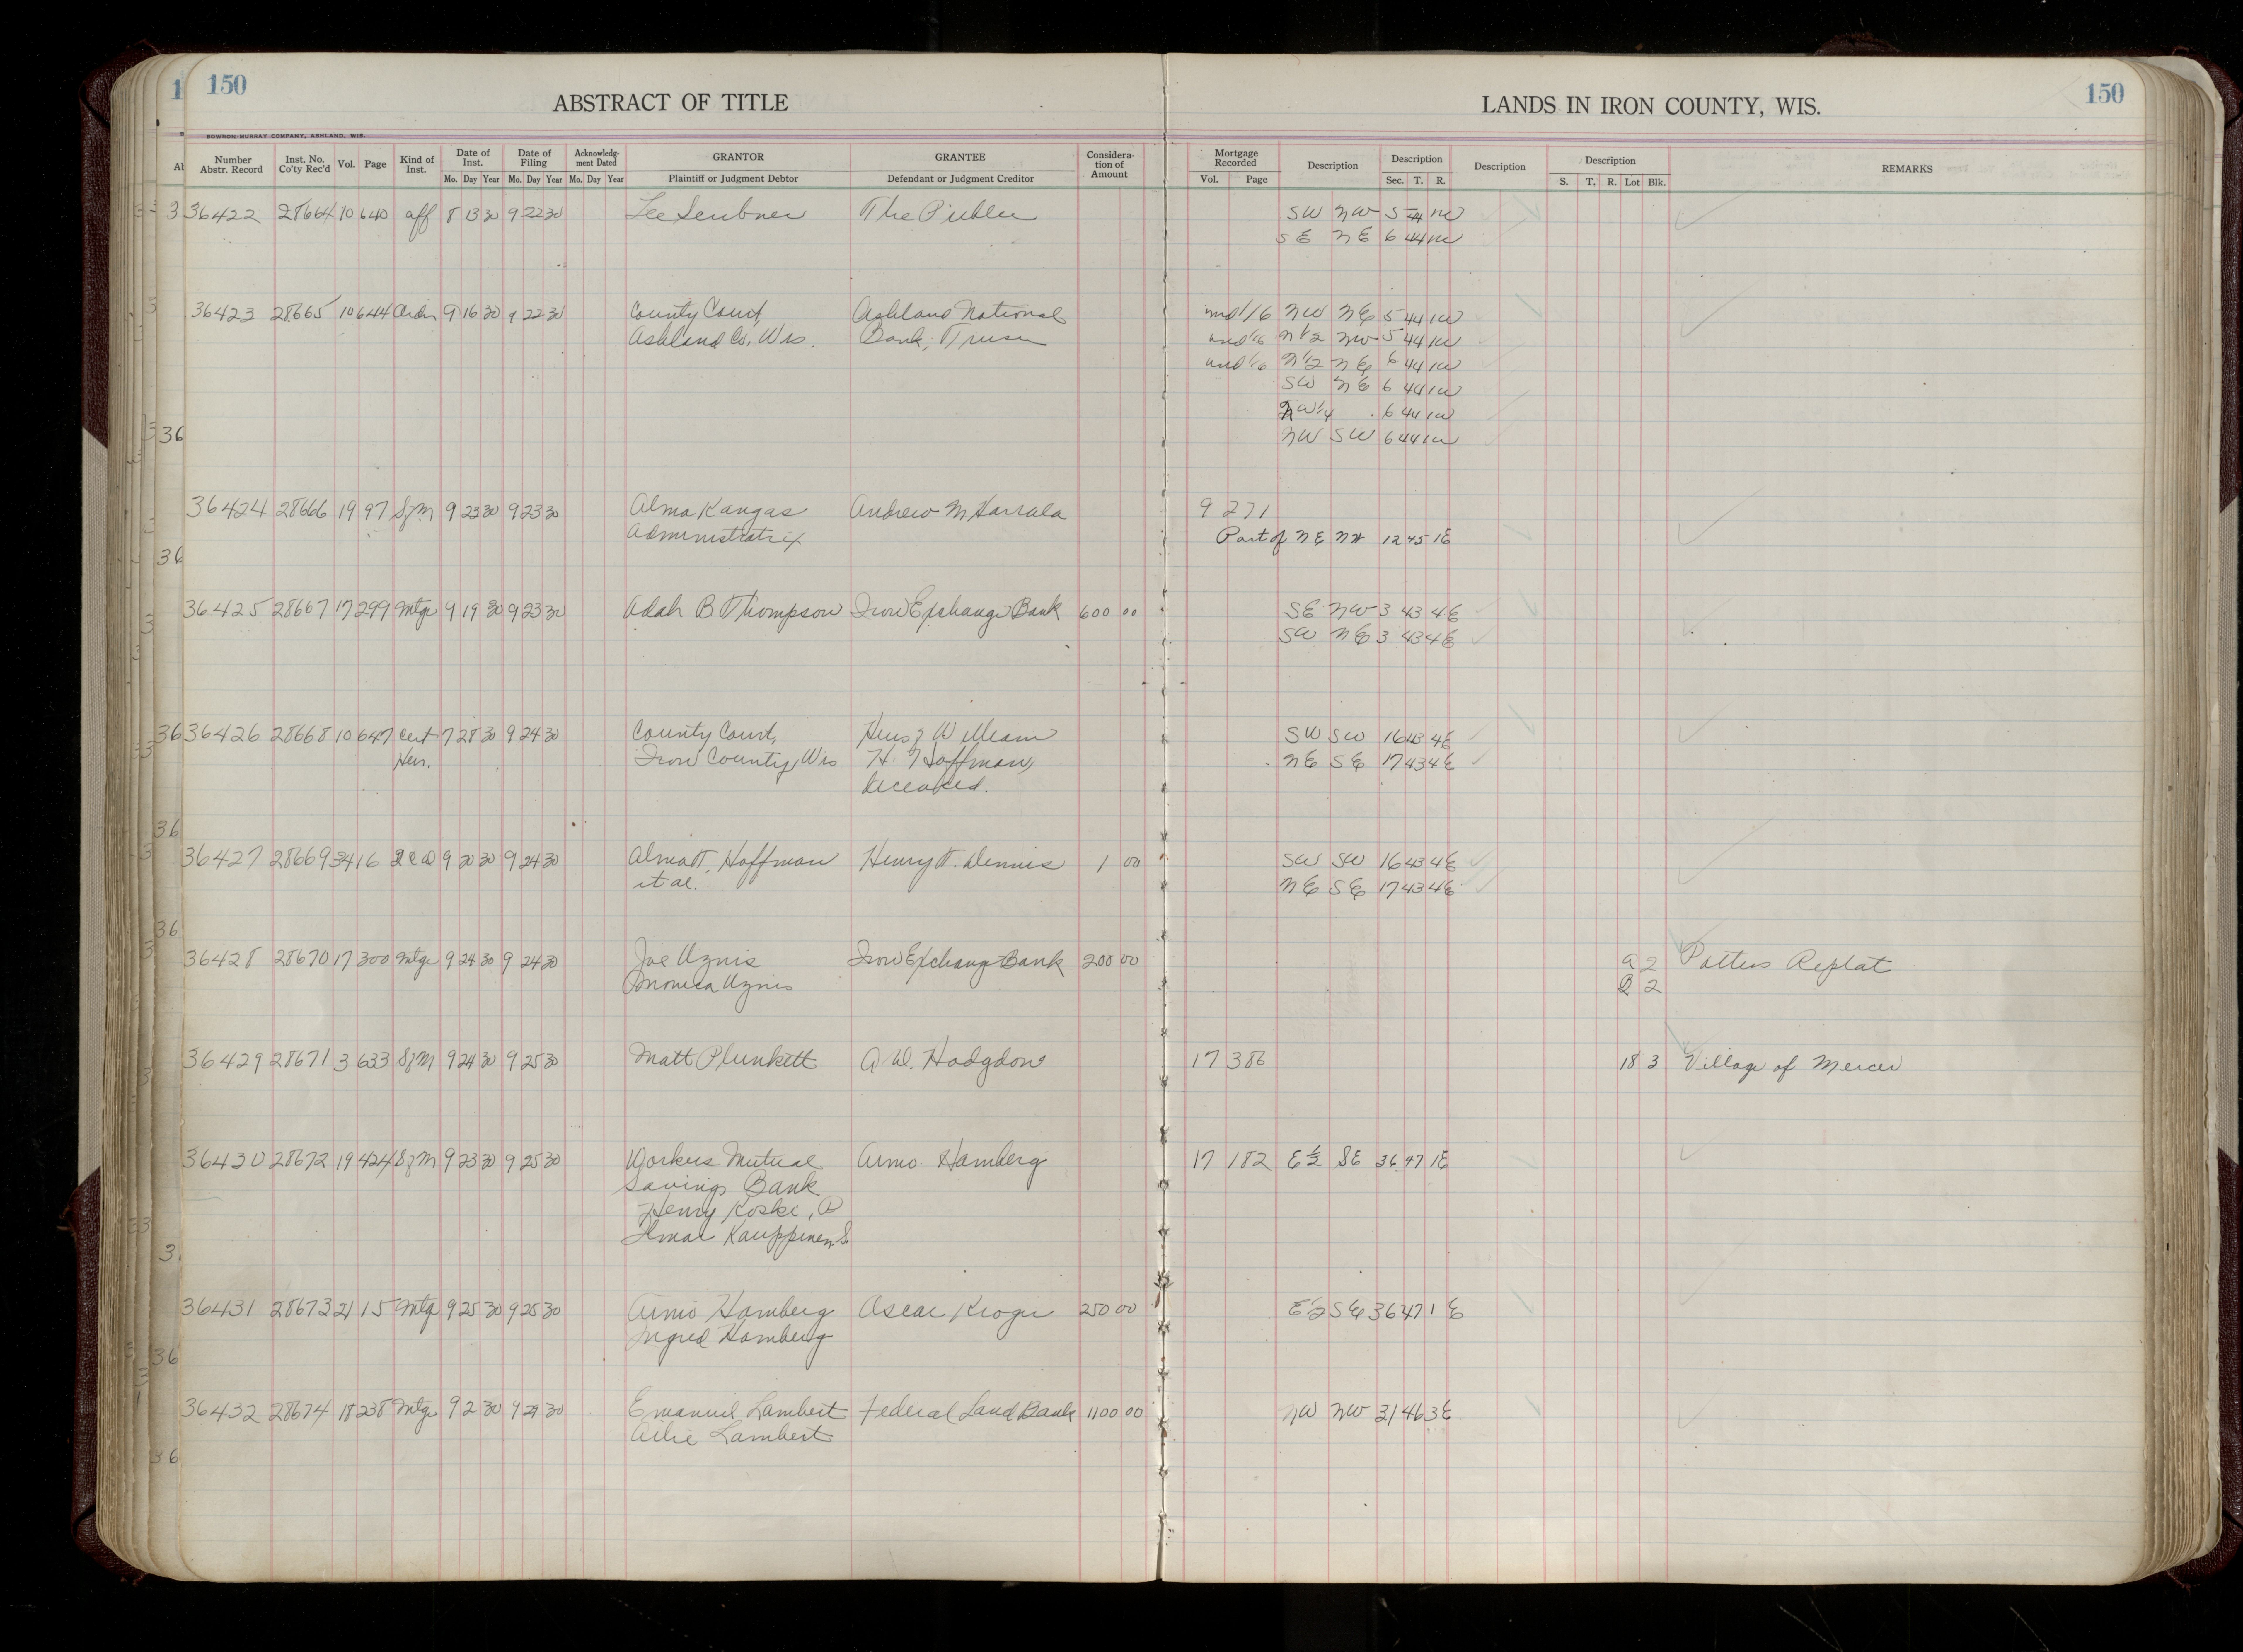 150
ABSTRACT OF TITLE
LANDS IN IRON COUNTY, WIS.
150
BOWRON-MURRAY COMPANY, ASHLAND, WIS.
Number Abstr. Record Inst. No. Co'ty Rec'd Vol. Page Kind of Inst. Date of Inst. Date of Filing Acknowledg- ment Dated GRANTOR GRANTEE Considera- tion of Amount Mortgage Recorded Description Description Description Description REMARKS
Mo. Day Year Mo. Day Year Mo. Day Year Plaintiff or Judgment Debtor Defendant or Judgment Creditor Vol. Page Sec. T. R. S. T. R. Lot Blk.
36422 28664 10 640 aff 8 13 30 9 22 30 Lee The Public SW NW 5 44 1W
SE NE 6 44 1W
36423 28665 10 644 Order 9 16 30 9 22 30 County Court Ashland National und 1/6 NW NE 5 44 1W
Ashland Co, Wis. Bank, und 1/6 N1/2 NW 5 44 1W
und 1/6 N1/2 NE 6 44 1W
SW NE 6 44 1W
NW1/4 6 44 1W
NW SW 6 44 1W
36424 28666 19 97 SfM 9 23 30 9 23 30 Alma Kangas Andrew M Harrala 9 271
Administratrix Part of NE 12 45 1E
36425 28667 17 299 Mtge 9 19 30 9 23 30 Adah B Thompson Iron Exchange Bank 600 00 SE NW 3 43 4E
SW NE 3 43 4E
36426 28668 10 647 Cert 7 28 30 9 24 30 County Court, William SW SW 16 43 4E
Heir. Iron County, Wis H. Hoffman, NE SE 17 43 4E
deceased.
36427 28669 34 16 9 20 30 9 24 30 Alma T. Hoffman Henry T. Dennis 1 00 SW SW 16 43 4E
et al. NE SE 17 43 4E
36428 28670 17 300 Mtge 9 24 30 9 24 30 Joe Uznis Iron Exchange Bank 200 00 2 Potters Replat
Uznis 2
36429 28671 3 633 SfM 9 24 30 9 25 30 Matt Plunkett A W. Hodgdon 17 386 18 3 Village of Mercer
36430 28672 19 424 SfM 9 23 30 9 25 30 Workers Mutual Armo Hamberg 17 182 E½ SE 36 47 1E
Savings Bank
Henry Koski, P
Ilmar Kauppinen S.
36431 28673 21 15 Mtg 9 25 30 9 25 30 Armo Hamberg Oscar Kroger 250 00 E½ SE 36 47 1 E
Ingred Hamberg
36432 28674 18 238 Mtge 9 2 30 9 29 30 Emanuel Lambert Federal Land Bank 1100 00 NW NW 31 46 3E
Lambert